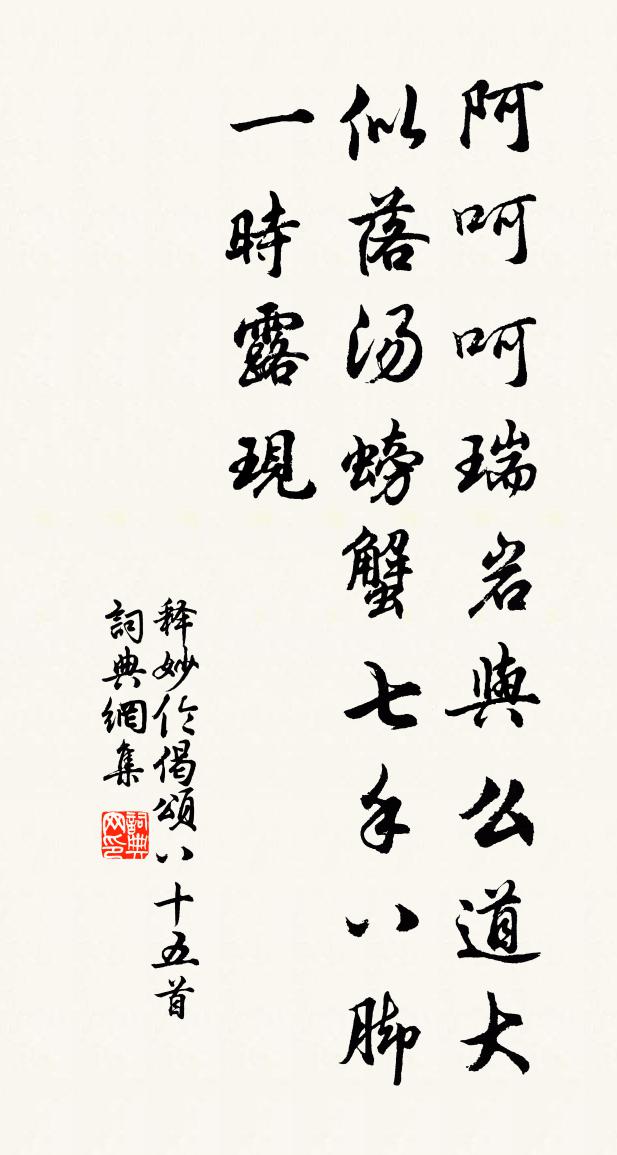 阿呵呵瑞岩與么道大
似落汤螃蟹七手八脚
一時露現
释妙伦偈頌八十五首
詞典網集
詞典网印